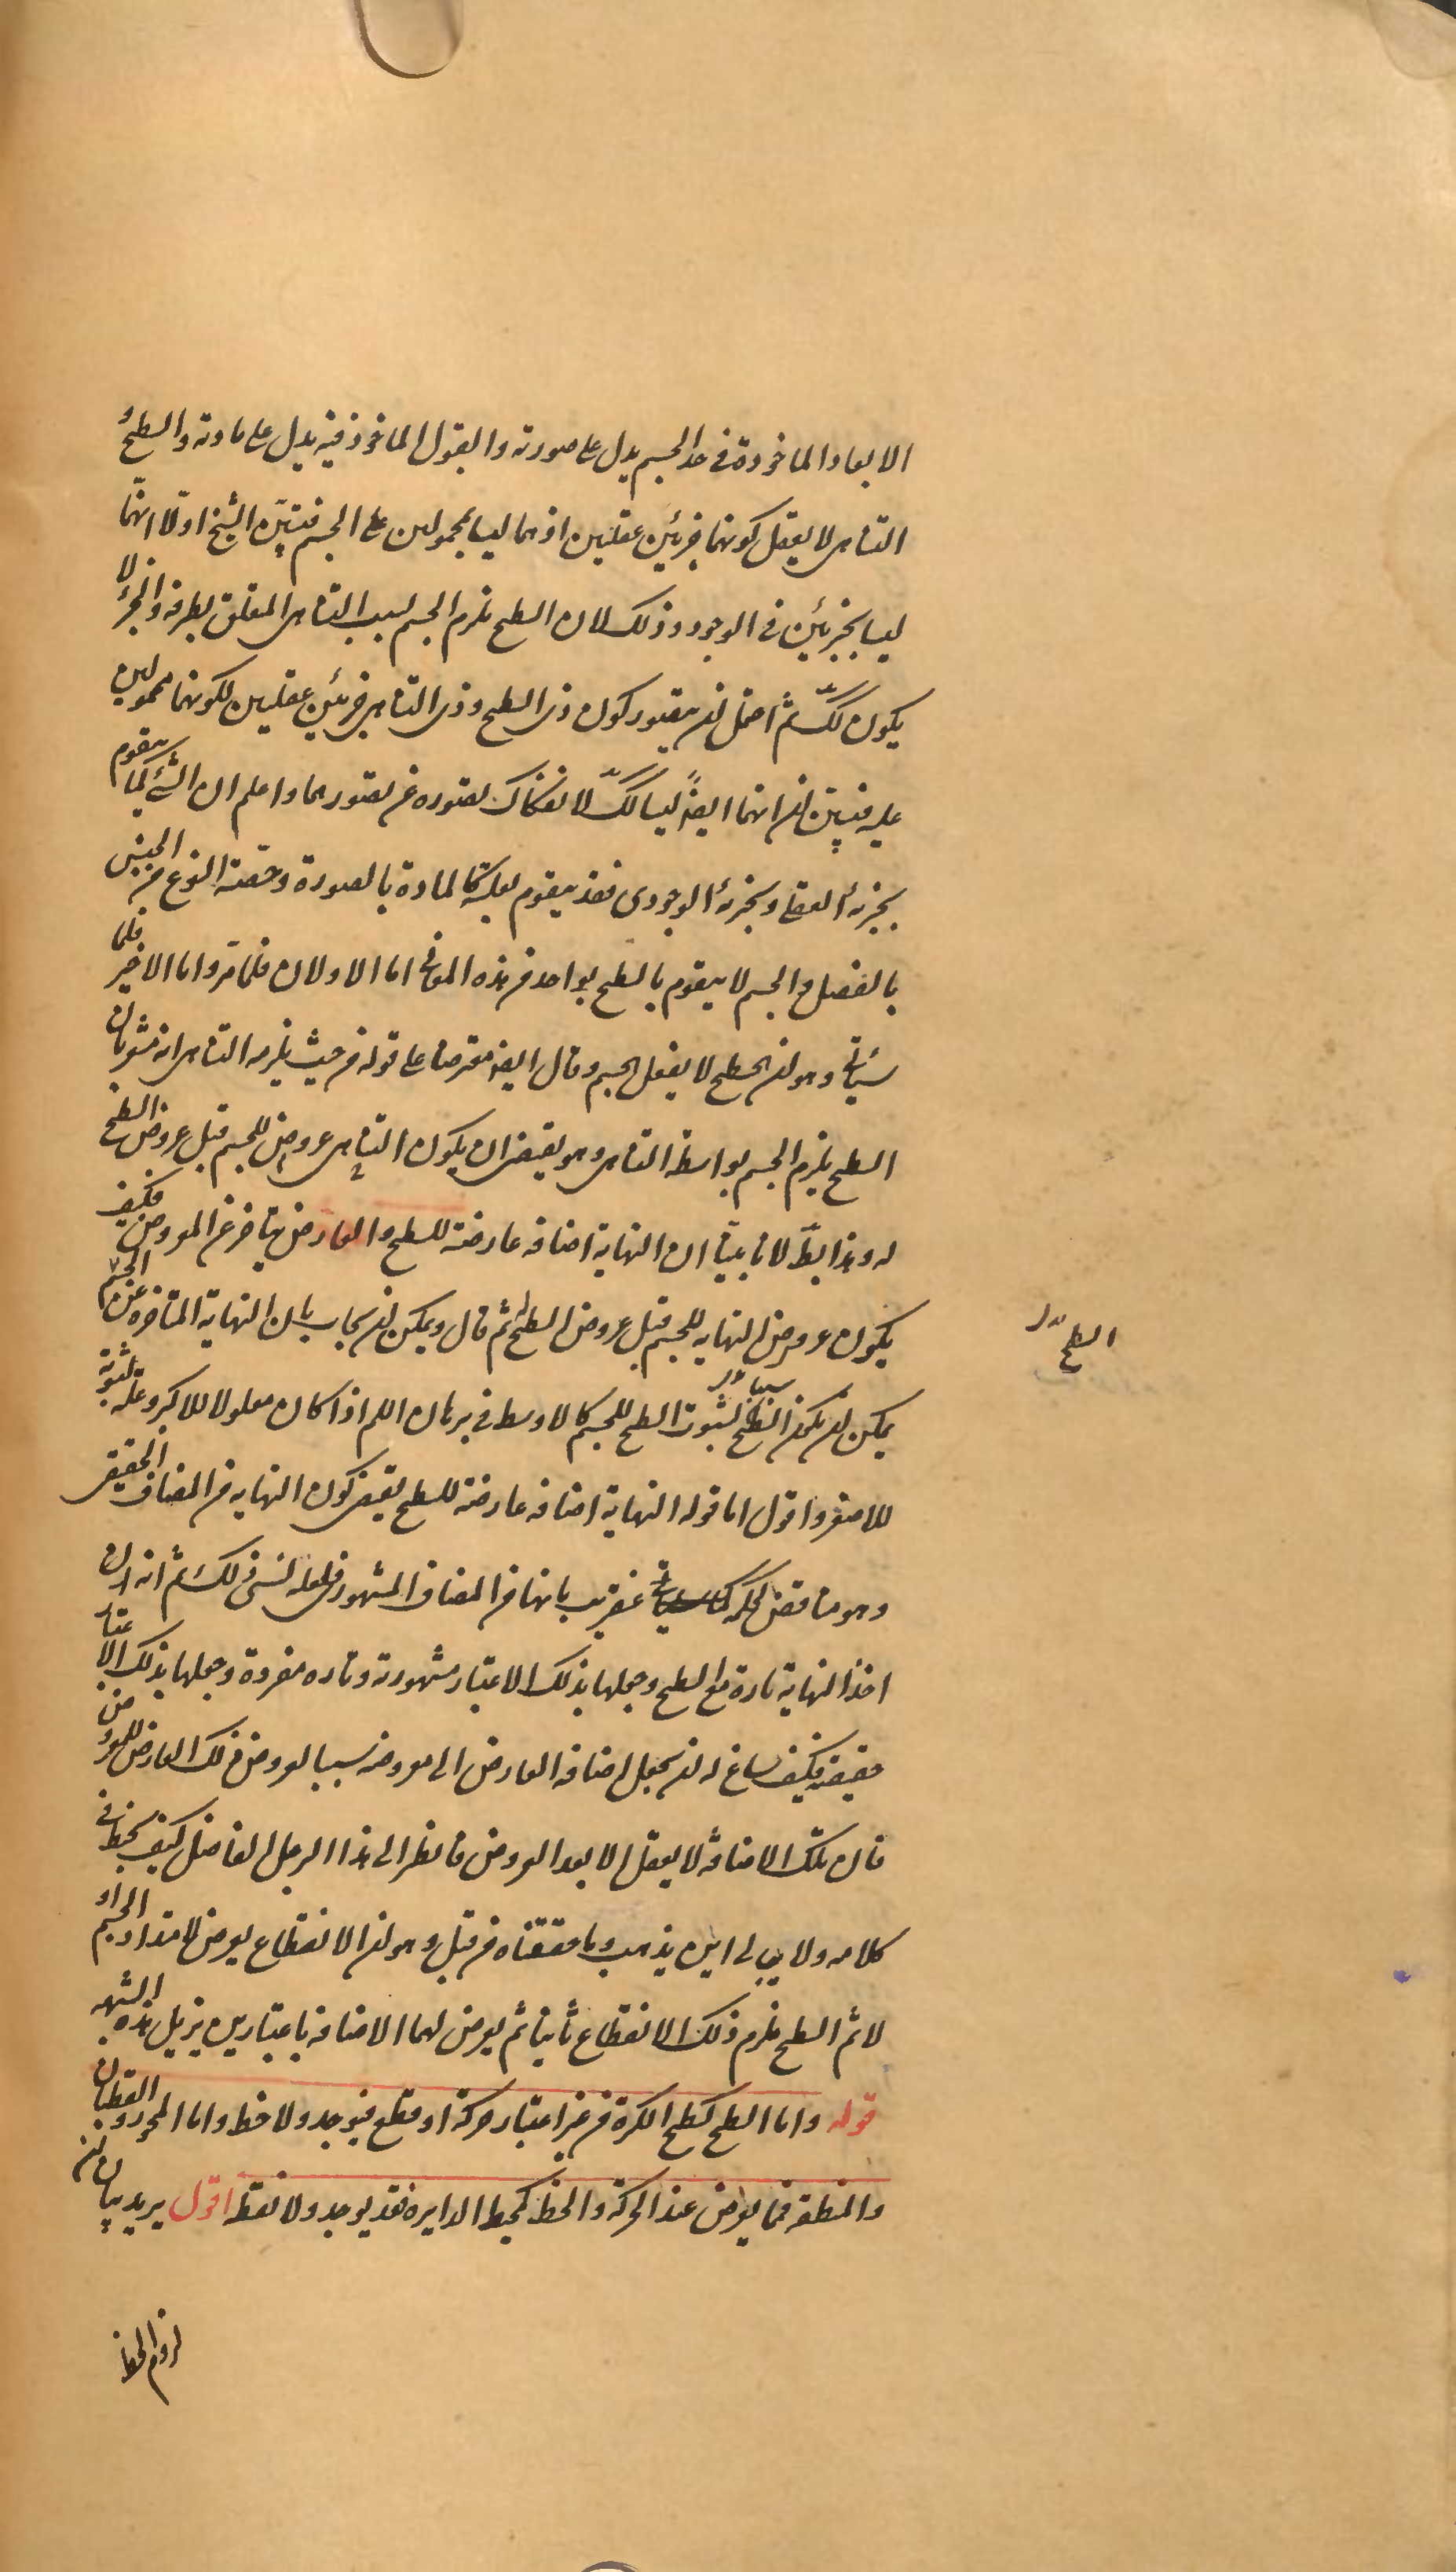 الابعاد الماخوذة فى حد الجسم يدل على صورته والقول الماخوذ فيه يدل على مادته والسطح و
التناهى لا يعقل كونهما جزئين عقليين اذ هما ليسا بمحمولين على الجسم فبيّن الشيخ اولا انهما
ليسا بجزئين فى الوجود وذلك لان السطح يلزم الجسم بسبب التناهى المتعلق بطرفه والجزء لا
يكون كك ثم احتمل ان يتصور كون ذى السطح وذى التناهى جزئين عقليين لكونهما محمولين
عليه فبيّن انهما ايضاً ليسا كك لانفكاك تصوره عن تصورهما واعلم ان الشئ كما يتقوم
بجزئه العقلى وبجزئه الوجودى فقد يتقوم بعلته كالمادة بالصورة وحصة النوع من الجنس
بالفصل والجسم لا يتقوم بالسطح بواحد من هذه المعانى اما الاولان فلما مرّ واما الاخير فلما
سيأتى وهو ان السطح لا يفعل الجسم وقال ايضا معترضا على قوله من حيث يلزمه التناهى انه مشعر بان
السطح يلزم الجسم بواسطة التناهى وهو يقتضى ان يكون التناهى عروضه للجسم قبل عروض السطح
له وهذا بط لانا بينا ان النهاية اضافة عارضة للسطح والعارض متاخر عن المعروض فكيف
يكون عروض النهاية للجسم قبل عروض السطح ثم قال ويمكن ان يجاب بان النهاية المتاخرة عن الجسم
السطح بدل
يمكن ان يكون السطح سببا لثبوت السطح للجسم كالاوسط فى برهان اللم اذا كان معلولا للاكبر وعلة لثبوته
للاصغر واقول اما قوله النهاية اضافة عارضة للسطح يقتضى كون النهاية من المضاف الحقيقى
وهو مناقض لحكمه عنقريب بانها من المضاف المشهور فلعله نسى ذلك ثم انه ان
اخذ النهاية تارة مع السطح وجعلها بذلك الاعتبار مشهورية وتاره مفردة وجعلها بذلك الاعتبار
حقيقية فكيف ساغ له ان يجعل اضافة العارض الى معروضه سببا لعروض ذلك العارض للمعروض
فان تلك الاضافة لا يعقل الا بعد العروض فانظر الى هذا الرجل الفاضل كيف يخبط فى
كلامه ولا يبالى اين يذهب وما حققناه من قبل وهو ان الانقطاع يعرض لامتداد الجسم او
لا ثم السطح يلزم ذلك الانقطاع ثانيا ثم يعرض لهما الاضافة باعتبارين يزيل هذه الشبهه
قوله واما السطح كسطح الكرة من غير اعتبار حركة او قطع فيوجد ولا خط واما المحور والقطبان
والمنطقة فمما يعرض عند الحركة والخط كمحيط الدايره فقد يوجد ولا نقطه اقول يريد بيان ان